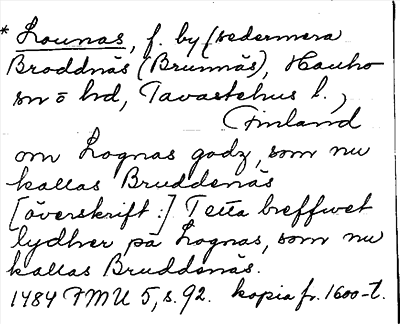 * Lounas, f. by (sedermera
Broddnäs (Brunnäs), Hauho
sn o hd, Tavastehus l.,
Finland
om Lognas godz, som nu
kallas Bruddenäs
[överskrift:] Tetta breffwet
lydher på Lognas, som nu
kallas Bruddenäs.
1484 FMU 5, s. 92. kopia fr. 1600-t.